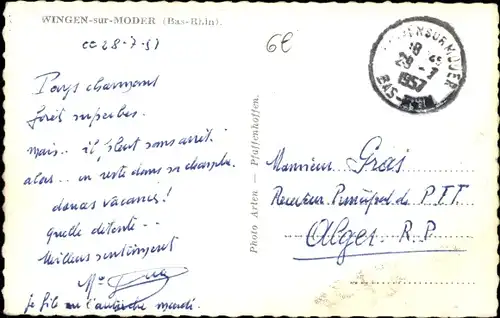 WINGEN-sur-MODER (Bas-Rhin).
ce 28-7-57
6E
WINGEN SUR MODER
18 45
29 - 7
1957
BAS-RHIN
Pays charmant
forêt superbe.
mais.. il pleut sans arrêt.
alors.. on reste dans sa chambre.
vacances!
Quelle détente..
Meilleurs sentiments
Je file mardi.
Photo Arten — Pfaffenhoffen.
Monsieur Grais
Receveur Principal de P.T.T.
Alger. R.P.